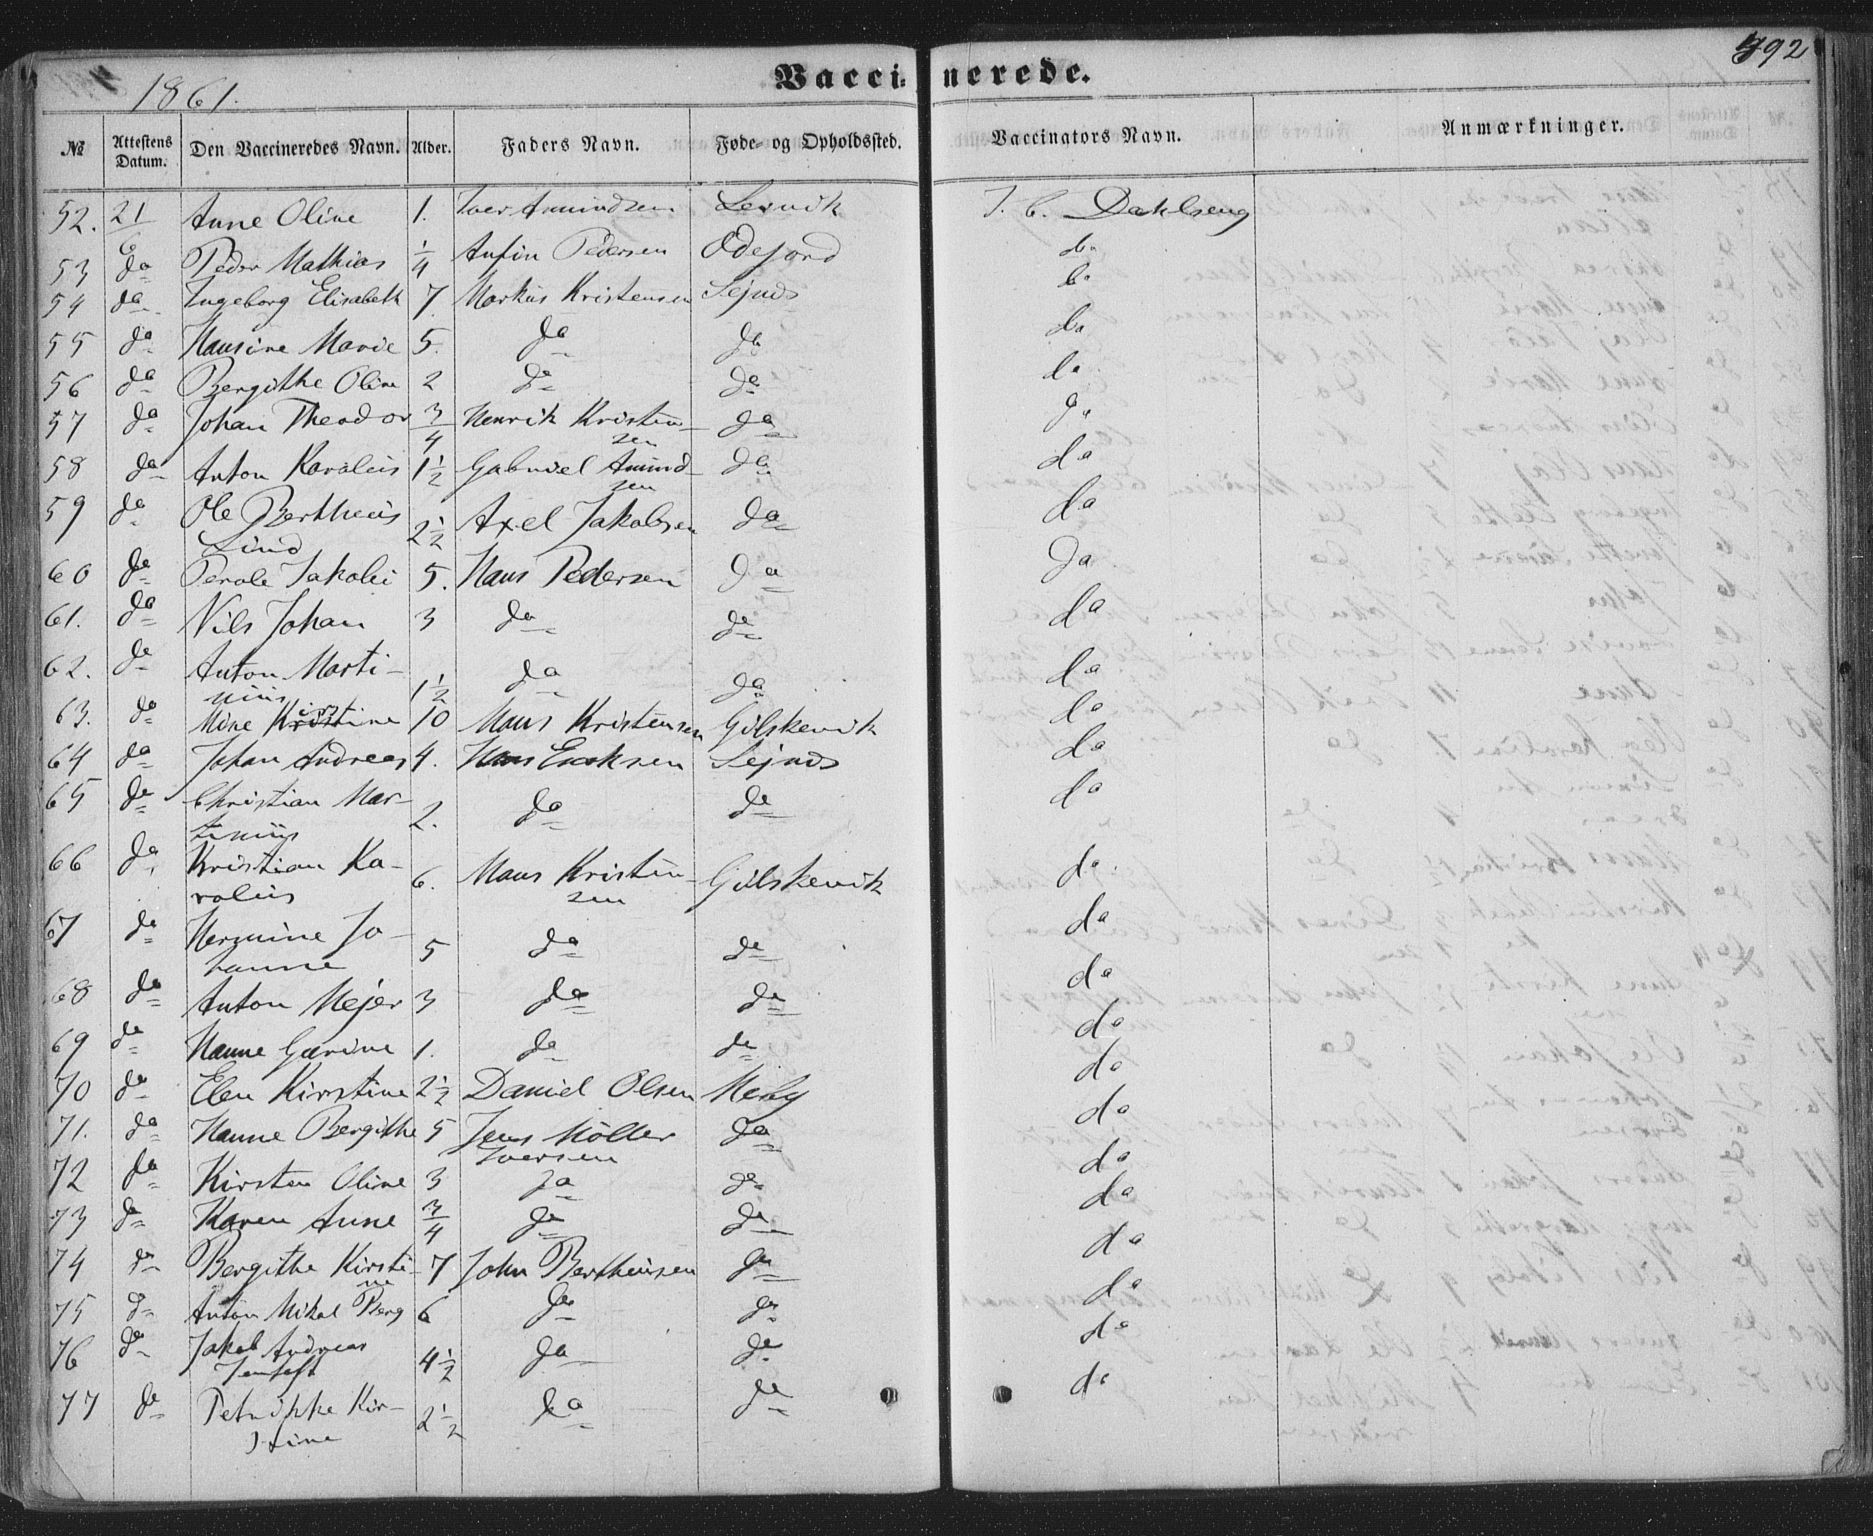 1861.
Vaccinerede.
392
№ Attestens Datum. Den Vaccineredes Navn. Alder. Faders Navn. Føde- og Opholdssted. Vaccinators Navn. Anmærkninger.
52. 21/6 Anne Oline 1. Iver Amundsen Lervik J. C. Dahlseng
53 do Peder Mathias 1/4 Anfin Pedersen Odefjord do
54 do Ingeborg Elisabeth 7. Markus Kristensen Sejnes do
55 do Hansine Marie 5. do do do
56 do Bergithe Oline 2 do do do
57 do Johan Theodor 3/4 Henrik Kristen-
sen do do
58 do Anton Karolius 1 1/2 Gabriel Amund-
sen do do
59 do Ole Bertheus
Lind 2 1/2 Axel Jakobsen do do
60 do Perole Jakobi 5. Hans Pedersen do do
61. do Nils Johan 3 do do do
62. do Anton Marti-
nius 1 1/2 do do do
63. do Mine Kristine 10 Hans Kristensen Gilskevik do
64 do Johan Andreas 4. Hans Eriksen Sejnes do
65 do Christian Mar-
tinius 2. do do do
66 do Kristian Ka-
rolius 6. Hans Kristen-
sen Gilskevik do
67 do Hermine Jo-
hanne 5 do do do
68 do Anton Mejer 3 do do do
69 do Hanne Gurine 1. do do do
70 do Elen Kirstine 2 1/2 Daniel Olsen Meby do
71. do Hanne Bergithe 5 Jens Möller
Iversen do do
72 do Kirsten Oline 3 do do do
73 do Karen Anne 3/4 do do do
74 do Bergithe Kirsti-
ne 7 John Bertheusen do do
75 do Anton Mikal Berg 6 do do do
76 do Jakob Andreas
Jentoft 4 1/2 do do do
77 do Petrikke Kir-
stine 2 1/2 do do do